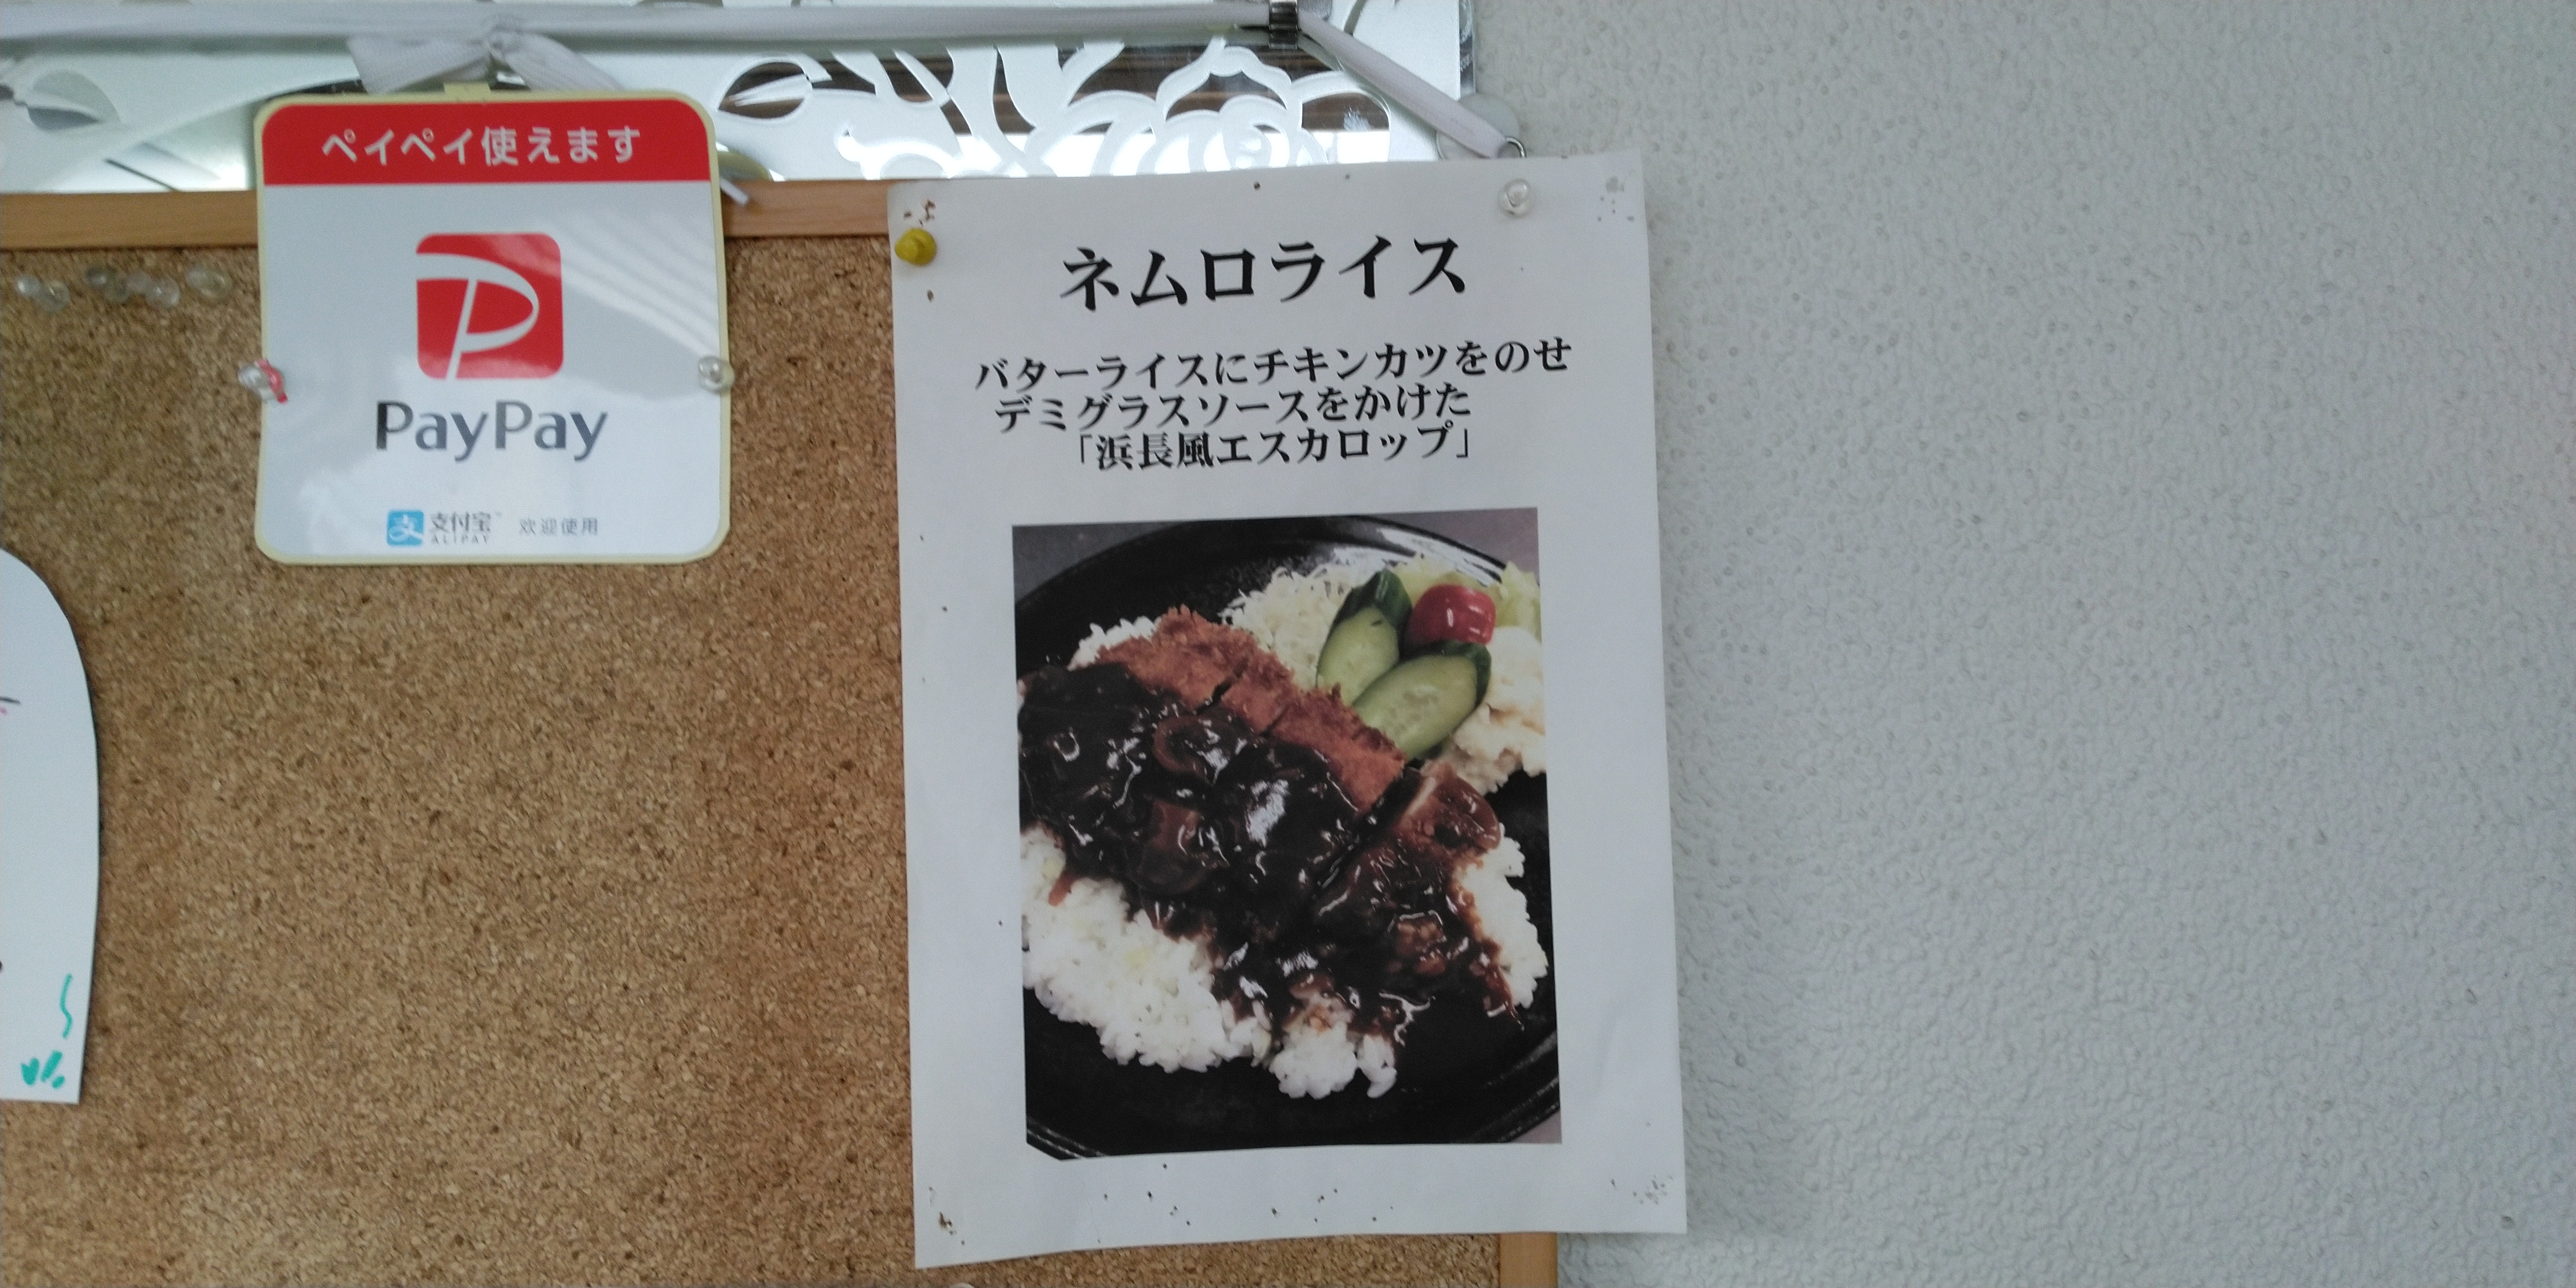 ペイペイ使えます
PayPay
支付宝 欢迎使用
ALIPAY
ネムロライス
バターライスにチキンカツをのせ
デミグラスソースをかけた
「浜長風エスカロップ」